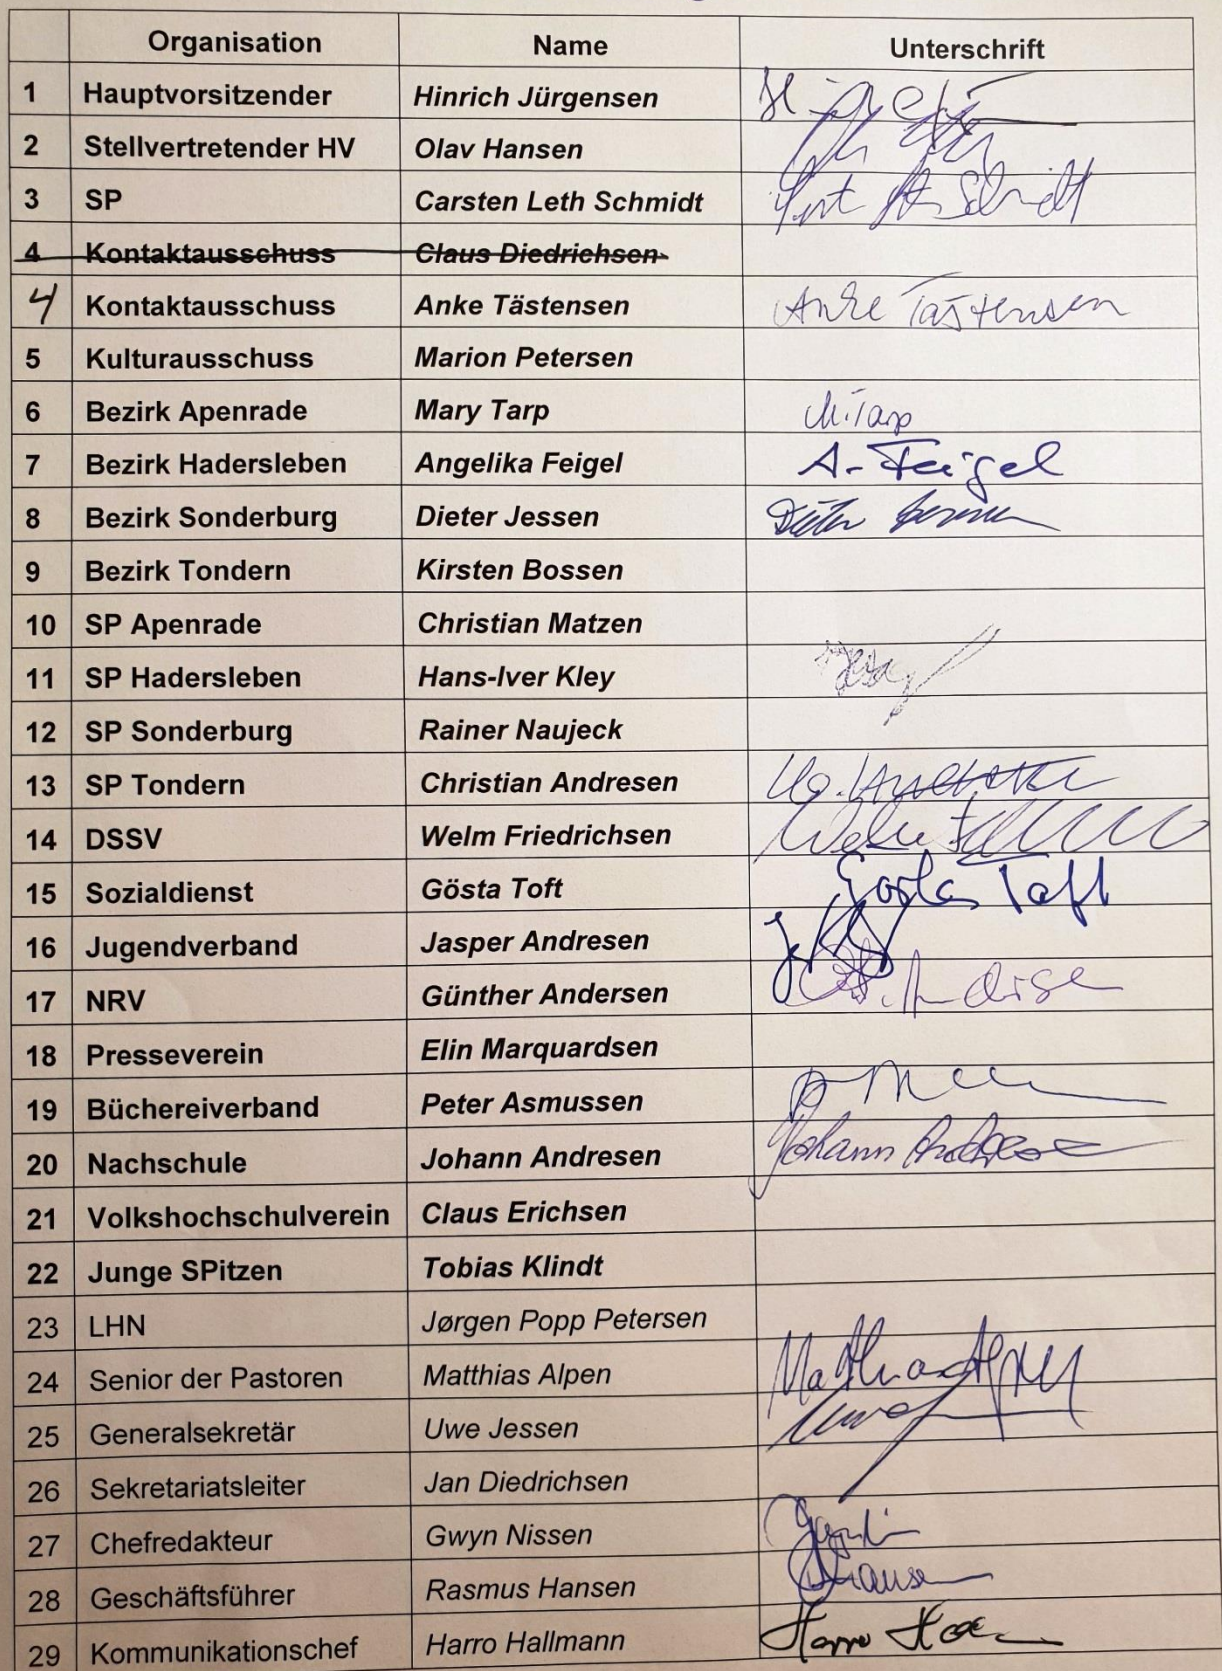 Organisation Name Unterschrift
1 Hauptvorsitzender Hinrich Jürgensen
2 Stellvertretender HV Olav Hansen
3 SP Carsten Leth Schmidt Schmidt
4 Kontaktausschuss Claus Diedrichsen
4 Kontaktausschuss Anke Tästensen Anke Tastensen
5 Kulturausschuss Marion Petersen
6 Bezirk Apenrade Mary Tarp M. Tarp
7 Bezirk Hadersleben Angelika Feigel A. Feigel
8 Bezirk Sonderburg Dieter Jessen Dieter Jessen
9 Bezirk Tondern Kirsten Bossen
10 SP Apenrade Christian Matzen
11 SP Hadersleben Hans-Iver Kley
12 SP Sonderburg Rainer Naujeck
13 SP Tondern Christian Andresen
14 DSSV Welm Friedrichsen
15 Sozialdienst Gösta Toft Gösta Toft
16 Jugendverband Jasper Andresen
17 NRV Günther Andersen
18 Presseverein Elin Marquardsen
19 Büchereiverband Peter Asmussen
20 Nachschule Johann Andresen Johann Andresen
21 Volkshochschulverein Claus Erichsen
22 Junge SPitzen Tobias Klindt
23 LHN Jørgen Popp Petersen
24 Senior der Pastoren Matthias Alpen Matthias Alpen
25 Generalsekretär Uwe Jessen
26 Sekretariatsleiter Jan Diedrichsen
27 Chefredakteur Gwyn Nissen
28 Geschäftsführer Rasmus Hansen
29 Kommunikationschef Harro Hallmann Harro